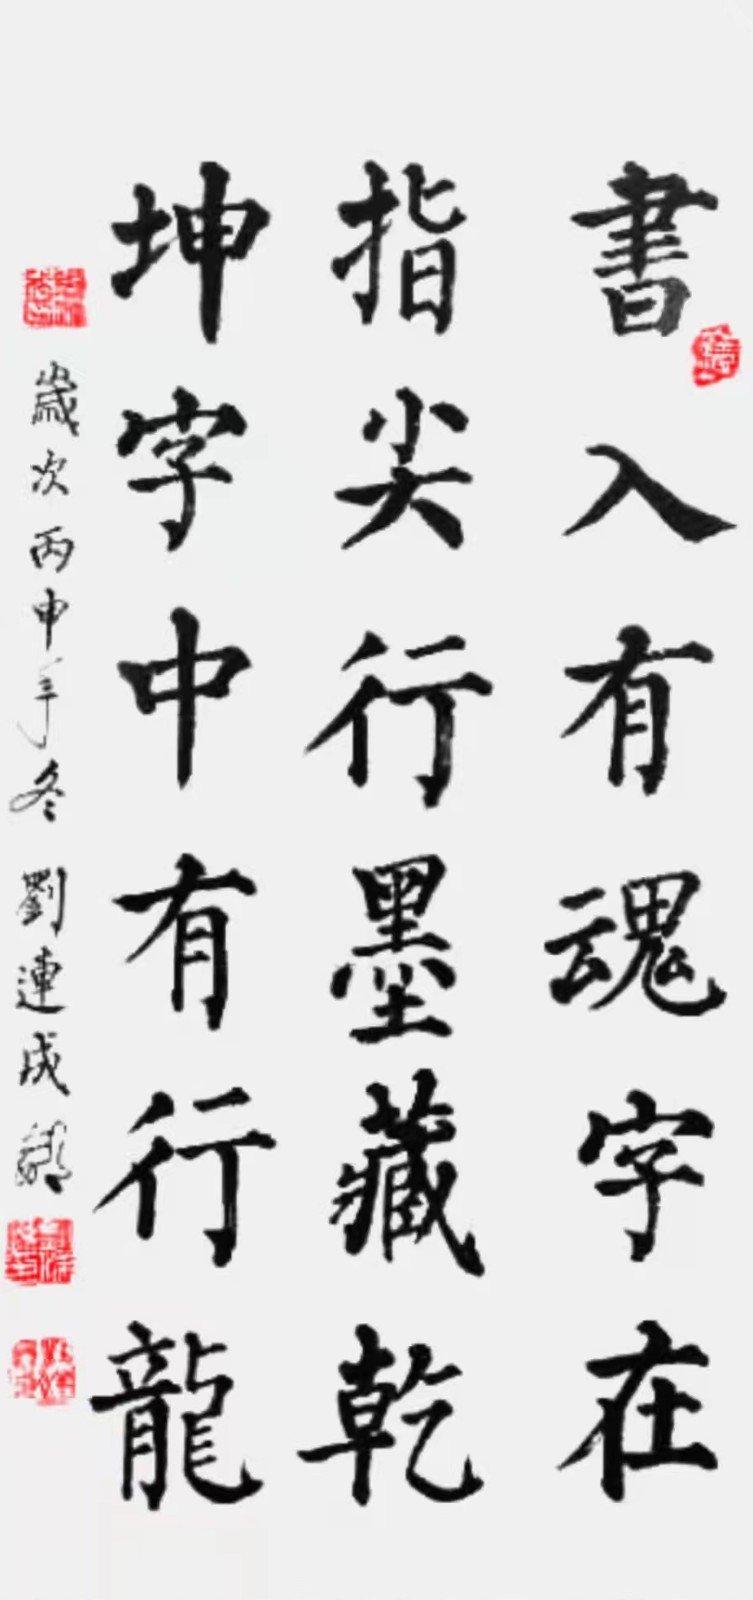 書入有魂字在
指尖行墨藏乾
坤字中有行龍
歲次丙申年冬劉連成